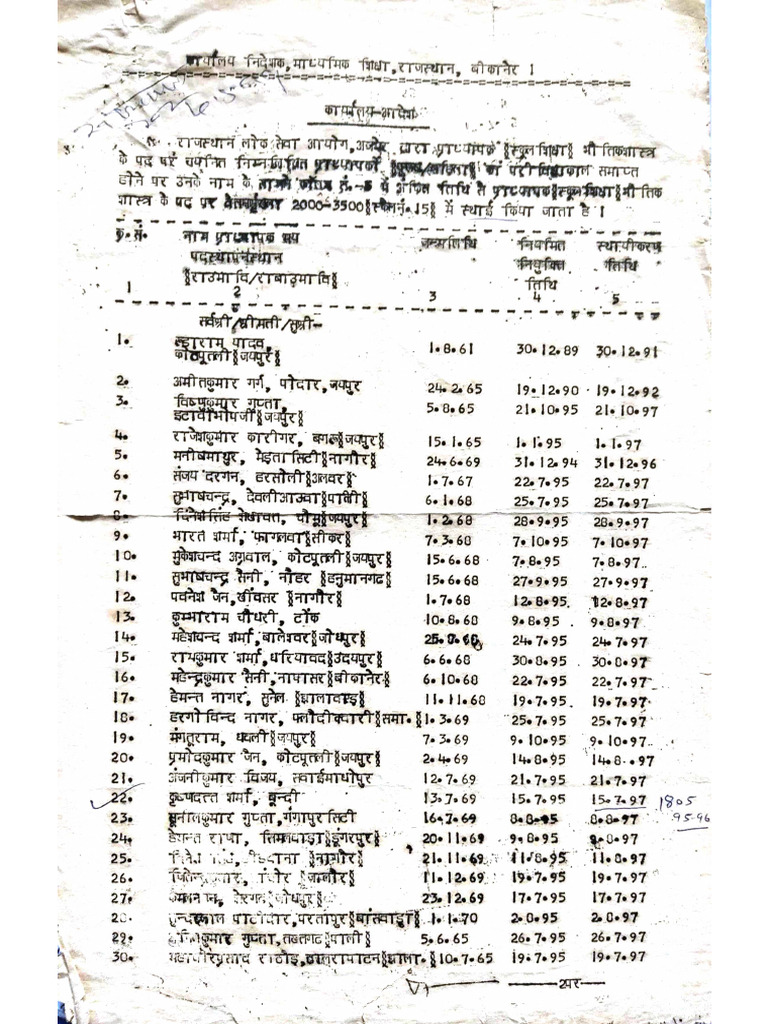 कार्यालय निदेशक, माध्यमिक शिक्षा, राजस्थान, बीकानेर ।
कार्यालय-आदेश
राजस्थान लोक सेवा आयोग, अजमेर द्वारा प्राध्यापक §स्कूल शिक्षा§ भौतिकशास्त्र
के पद पर चयनित निम्नलिखित प्राध्यापकों का परीविक्षाकाल समाप्त
होने पर उनके नाम के सामने कॉलम सं.-5 में अंकित तिथि से प्राध्यापक §स्कूल शिक्षा§ भौतिक
शास्त्र के पद पर वेतनश्रृंखला 2000-3500 §स्केल नं. 15§ में स्थाई किया जाता है ।
क्र. सं. नाम प्राध्यापक मय जन्मतिथि नियमित स्थायीकरण
पदस्थापनस्थान नियुक्ति तिथि
§राउमावि/राबाउमावि§ तिथि
1 2 3 4 5
सर्वश्री/श्रीमती/सुश्री-
1. यादव, 1.8.61 30.12.89 30.12.91
कोटपूतली §जयपुर§
2. अमीतकुमार गर्ग, पोदार, जयपुर 24.2.65 19.12.90 19.12.92
3. विष्णुकुमार गुप्ता, 5.8.65 21.10.95 21.10.97
इटावाभोपजी §जयपुर§
4. राजेशकुमार कारीगर, बगरू §जयपुर§ 15.1.65 1.1.95 1.1.97
5. मनीषमाथुर, मेड़ता सिटी §नागौर§ 24.6.69 31.12.94 31.12.96
6. संजय दरगन, हरसोली §अलवर§ 1.7.67 22.7.95 22.7.97
7. सुभाषचन्द्र, देवलीआउवा §पाली§ 6.1.68 25.7.95 25.7.97
8. दिनेश सिंह शेखावत, चौमू §जयपुर§ 1.2.68 28.9.95 28.9.97
9. भारत शर्मा, फागलवा §सीकर§ 7.3.68 7.10.95 7.10.97
10. मुकेशचन्द अग्रवाल, कोटपूतली §जयपुर§ 15.6.68 7.8.95 7.8.97
11. सुभाषचन्द्र सैनी, नोहर §हनुमानगढ§ 15.6.68 27.9.95 27.9.97
12. पवनेश जैन, खींवसर §नागौर§ 1.7.68 12.8.95 12.8.97
13. कुम्भाराम चौधरी, टोंक 10.8.68 9.8.95 9.8.97
14. महेशचन्द शर्मा, बालेश्वर §जोधपुर§ 24.7.95 24.7.97
15. रामकुमार शर्मा, धरियावद §उदयपुर§ 6.6.68 30.8.95 30.8.97
16. महेन्द्रकुमार सैनी, नापासर §बीकानेर§ 6.10.68 22.7.95 22.7.97
17. हेमन्त नागर, सुनेल §झालावाड§ 11.11.68 19.7.95 19.7.97
18. हरगोविन्द नागर, फ्लौदीक्वारी §समा.§ 1.3.69 25.7.95 25.7.97
19. मंगतूराम, धवली §जयपुर§ 7.3.69 9.10.95 9.10.97
20. प्रमोदकुमार जैन, कोटपूतली §जयपुर§ 2.4.69 14.8.95 14.8.97
21. अंजनीकुमार विजय, सवाईमाधोपुर 12.7.69 21.7.95 21.7.97
22. कृष्णदत्त शर्मा, बून्दी 13.7.69 15.7.95 15.7.97 1805
95-96
23. सुनीलकुमार गुप्ता, गंगापुर सिटी 16.7.69 8.8.95 8.8.97
24. हेमन्त §डूंगरपुर§ 20.11.69 9.8.95 9.8.97
25. §नागौर§ 21.11.69 11.8.95 11.8.97
26. जितेन्द्रकुमार, §जालौर§ 11.12.69 19.7.95 19.7.97
27. §जोधपुर§ 23.12.69 17.7.95 17.7.97
28. सुन्दरलाल पाटीदार, परतापुर §बांसवाडा§ 1.1.70 2.8.95 2.8.97
29. गुप्ता, तखतगढ §पाली§ 5.6.65 26.7.95 26.7.97
30. महावीरप्रसाद राठोड़, झालरापाटन §झाला.§ 10.7.65 19.7.95 19.7.97